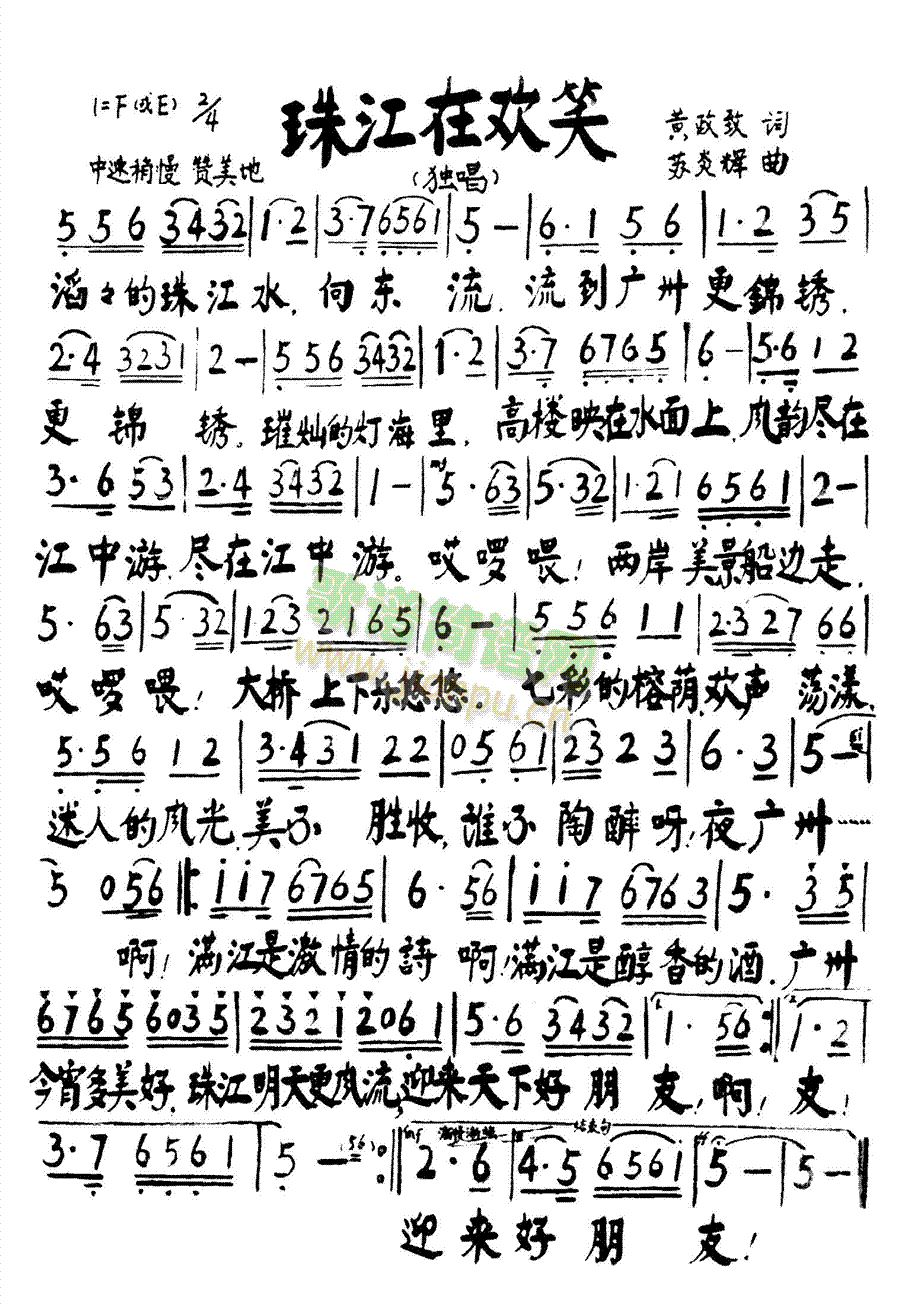 珠江在欢笑
1=F(或E) 2/4
黄政致 词
中速稍慢 赞美地
(独唱)
苏炎辉 曲
5 5 6 3432 | 1·2 | 3·7 6561 | 5 — | 6·1 5 6 | 1·2 3 5 |
滔々的珠江水,向东 流,流到广州更錦锈,
2·4 3231 | 2 — | 5 5 6 3432 | 1·2 | 3·7 6765 | 6 — | 5·6 1 2
更 锦 锈,璀灿的灯海里,高楼映在水面上,风韵尽在
3·6 53 | 2·4 3432 | 1 — | mf 5·63 | 5·32 | 1·21 6561 | 2 —
江中游,尽在江中游。哎啰喂!两岸美景船边走,
5·63 | 5·32 | 1·23 2165 | 6 — | 5 5 6 1 1 | 2·327 66 |
哎啰喂!大桥上下乐悠悠。七彩的榕荫,欢声 荡漾,
5·56 12 | 3·431 22 | 05 61 | 23 2 3 | 6·3 | 5 —
迷人的风光,美不 胜收,誰不陶醉呀!夜广州……
5 056 ‖: i i 7 6765 | 6·56 | i i 7 6763 | 5· 35
啊!满江是激情的詩 啊!满江是醇香的酒,广州
6765 6035 | 2321 2061 | 5·6 3432 | 1. 1·56 :‖ 2. 1·2
今宵多美好,珠江明天更风流,迎来天下好 朋 友,啊!友!
3·7 6561 | 5 — (56) :‖ mf 2·6 | 4·5 6561 | ff 5 — | 5 — ‖
结束句
迎来好 朋 友!
歌谱简谱网
www.jianpu.cn